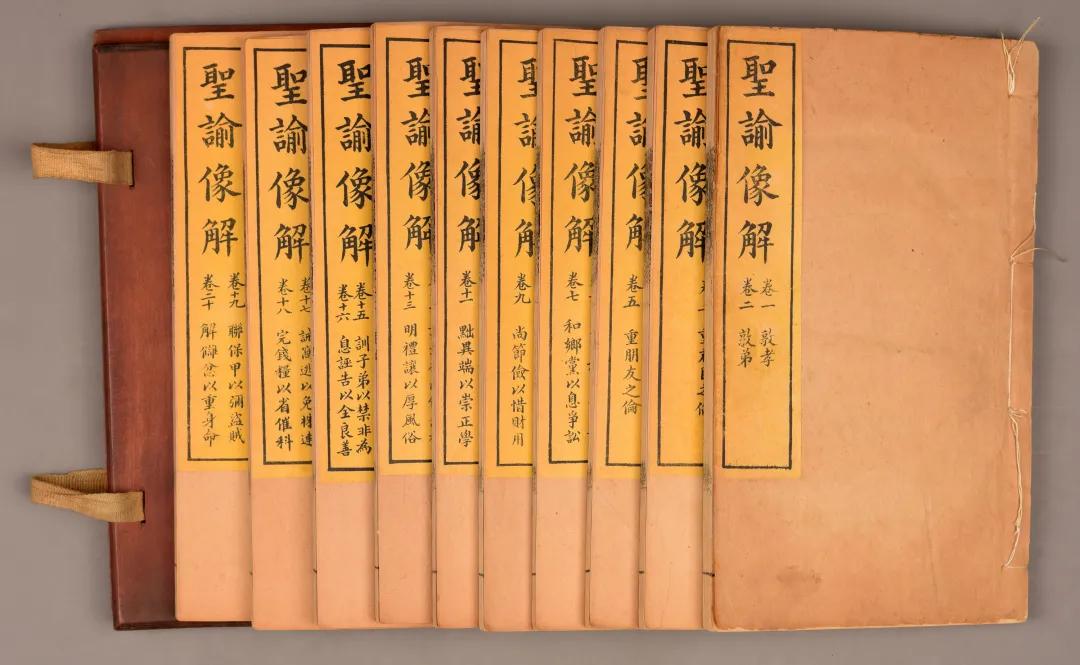 聖諭像解
卷一 敦孝
卷二 敦弟
聖諭像解
聖諭像解
卷五 重朋友之倫
聖諭像解
卷七 和鄉黨以息爭訟
聖諭像解
卷九 尚節儉以惜財用
聖諭像解
卷十一 黜異端以崇正學
聖諭像解
卷十三 明禮讓以厚風俗
聖諭像解
卷十五 訓子弟以禁非為
卷十六 息誣告以全良善
聖諭像解
卷十七 誡窩逃以免株連
卷十八 完錢糧以省催科
聖諭像解
卷十九 聯保甲以彌盜賊
卷二十 解讎忿以重身命